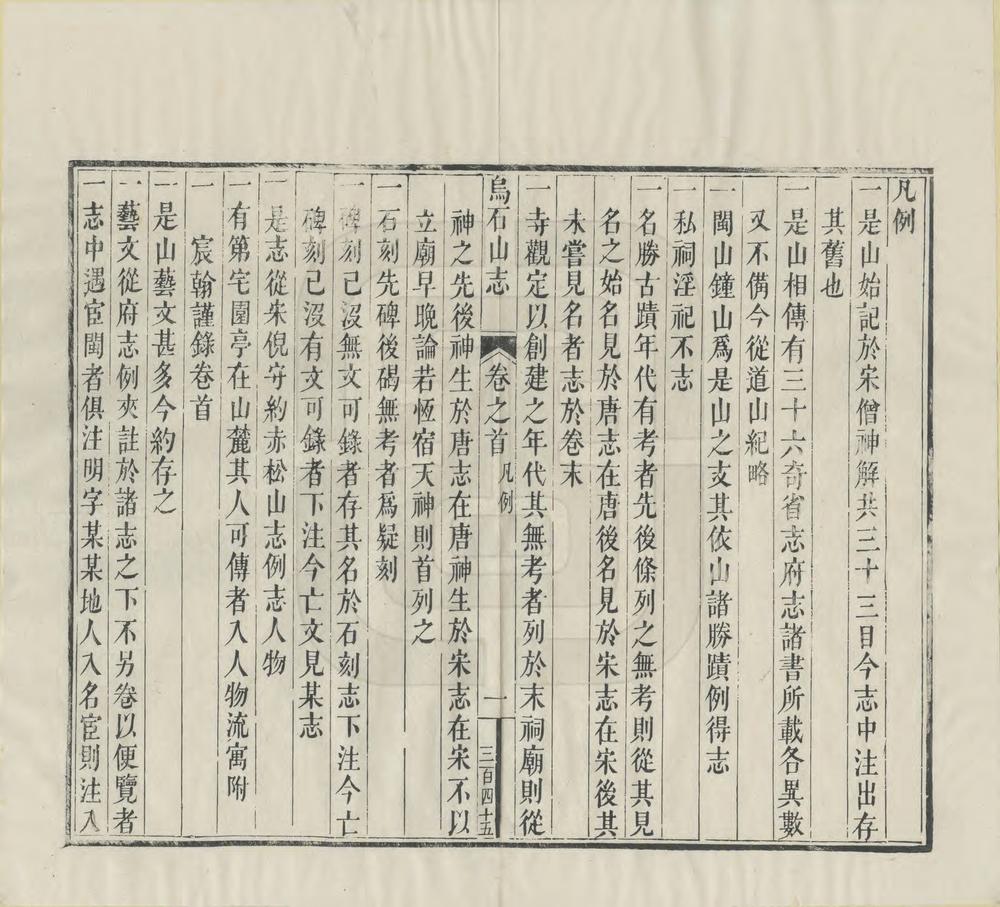 凡例
一是山始記於宋僧神解共三十三目今志中注出存
其舊也
一是山相傳有三十六奇省志府志諸書所載各異數
又不備今從道山紀略
一閩山鐘山爲是山之支其依山諸勝蹟例得志
一私祠淫祀不志
一名勝古蹟年代有考者先後條列之無考則從其見
名之始名見於唐志在唐後名見於宋志在宋後其
未嘗見名者志於卷末
一寺觀定以創建之年代其無考者列於末祠廟則從
烏石山志 卷之首 凡例 一 三百四十五
神之先後神生於唐志在唐神生於宋志在宋不以
立廟早晚論若恆宿天神則首列之
一石刻先碑後碣無考者爲疑刻
一碑刻已沒無文可錄者存其名於石刻志下注今亡
碑刻已沒有文可錄者下注今亡文見某志
一是志從朱倪守約赤松山志例志人物
一有第宅園亭在山麓其人可傳者入人物流寓附
一宸翰謹錄卷首
一是山藝文甚多今約存之
一藝文從府志例夾註於諸志之下不另卷以便覽者
一志中遇宦閩者俱注明字某某地人入名宦則注入